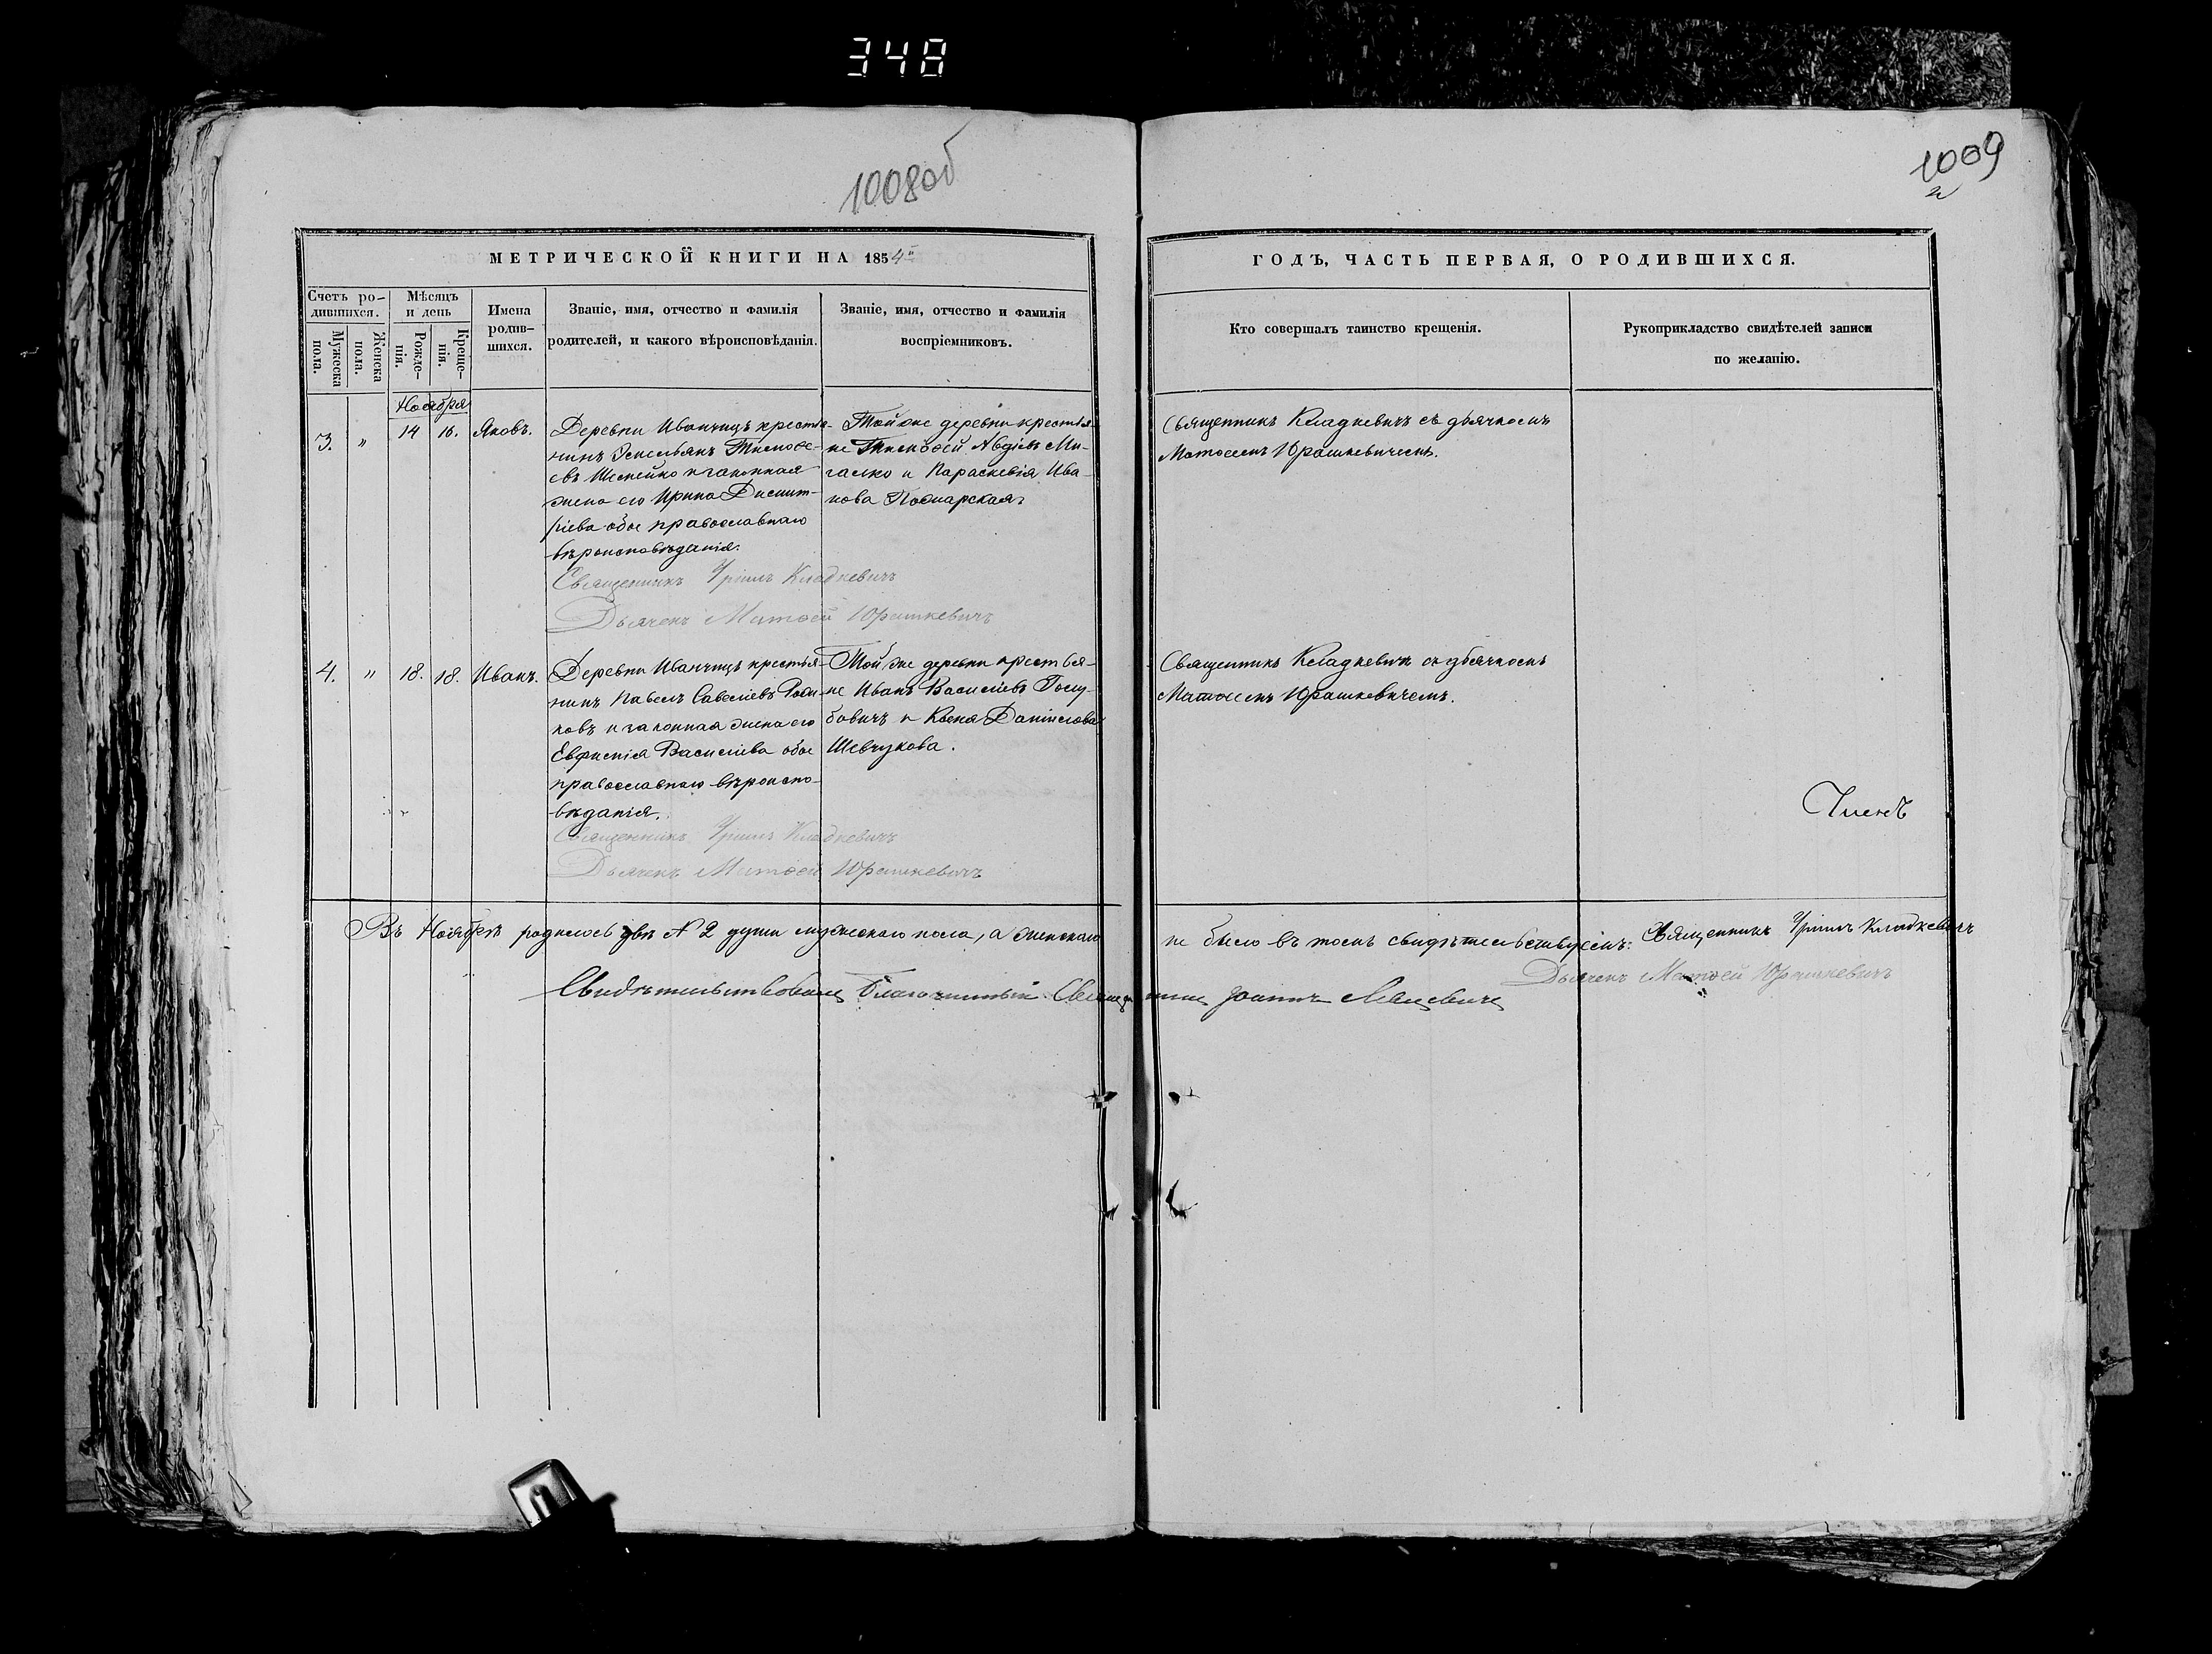 348
1008об
1009
МЕТРИЧЕСКОЙ КНИГИ НА 1854
ГОДЪ, ЧАСТЬ ПЕРВАЯ, О РОДИВШИХСЯ.
Счетъ ро-
дившихся.
Мужеска
пола.
Женска
пола.
Мѣсяцъ
и день
Рожде-
нія.
Креще-
нія.
Имена
родив-
шихся.
Званіе, имя, отчество и фамилія
родителей, и какого вѣроисповѣданія.
Званіе, имя, отчество и фамилія
воспріемниковъ.
Кто совершалъ таинство крещенія.
Рукоприкладство свидѣтелей записи
по желанію.
Ноября
3. " 14 16. Яковъ.
Деревни Иванчицъ крестья-
нинъ Емельянъ Тимофе-
евъ и законная
жена его Ирина Димит-
ріева обое православнаго
вѣроисповѣданія.
Священникъ Кладкевичъ
Дьячекъ Матѳей Юрашкевичъ
Той же деревни крестья-
не Тимофей Авдіевъ Ми-
галко и Параскевія Ива-
нова
Священникъ Кладкевичъ съ дьячкомъ
Матѳеемъ Юрашкевичемъ.
4. " 18. 18. Иванъ.
Деревни Иванчицъ крестья-
нинъ Павелъ Савеліевъ
ковъ и законная жена его
Евфимія Василіева обое
православнаго вѣроиспо-
вѣданія.
Священникъ Кладкевичъ
Дьячекъ Матѳей Юрашкевичъ
Той же деревни крестья-
не Иванъ Василіевъ Голу-
бовичъ и Ксенія Даніилова
Шевчукова.
Священникъ Кладкевичъ съ дьячкомъ
Матѳеемъ Юрашкевичемъ.
Членъ
Въ Ноябрѣ родилось двѣ № 2 души мужескаго пола, а женскаго не было въ томъ свидѣтельствуемъ: Священникъ Кладкевичъ
Дьячекъ Матѳей Юрашкевичъ
Свидѣтельствовалъ Благочинный Священникъ Іоаннъ